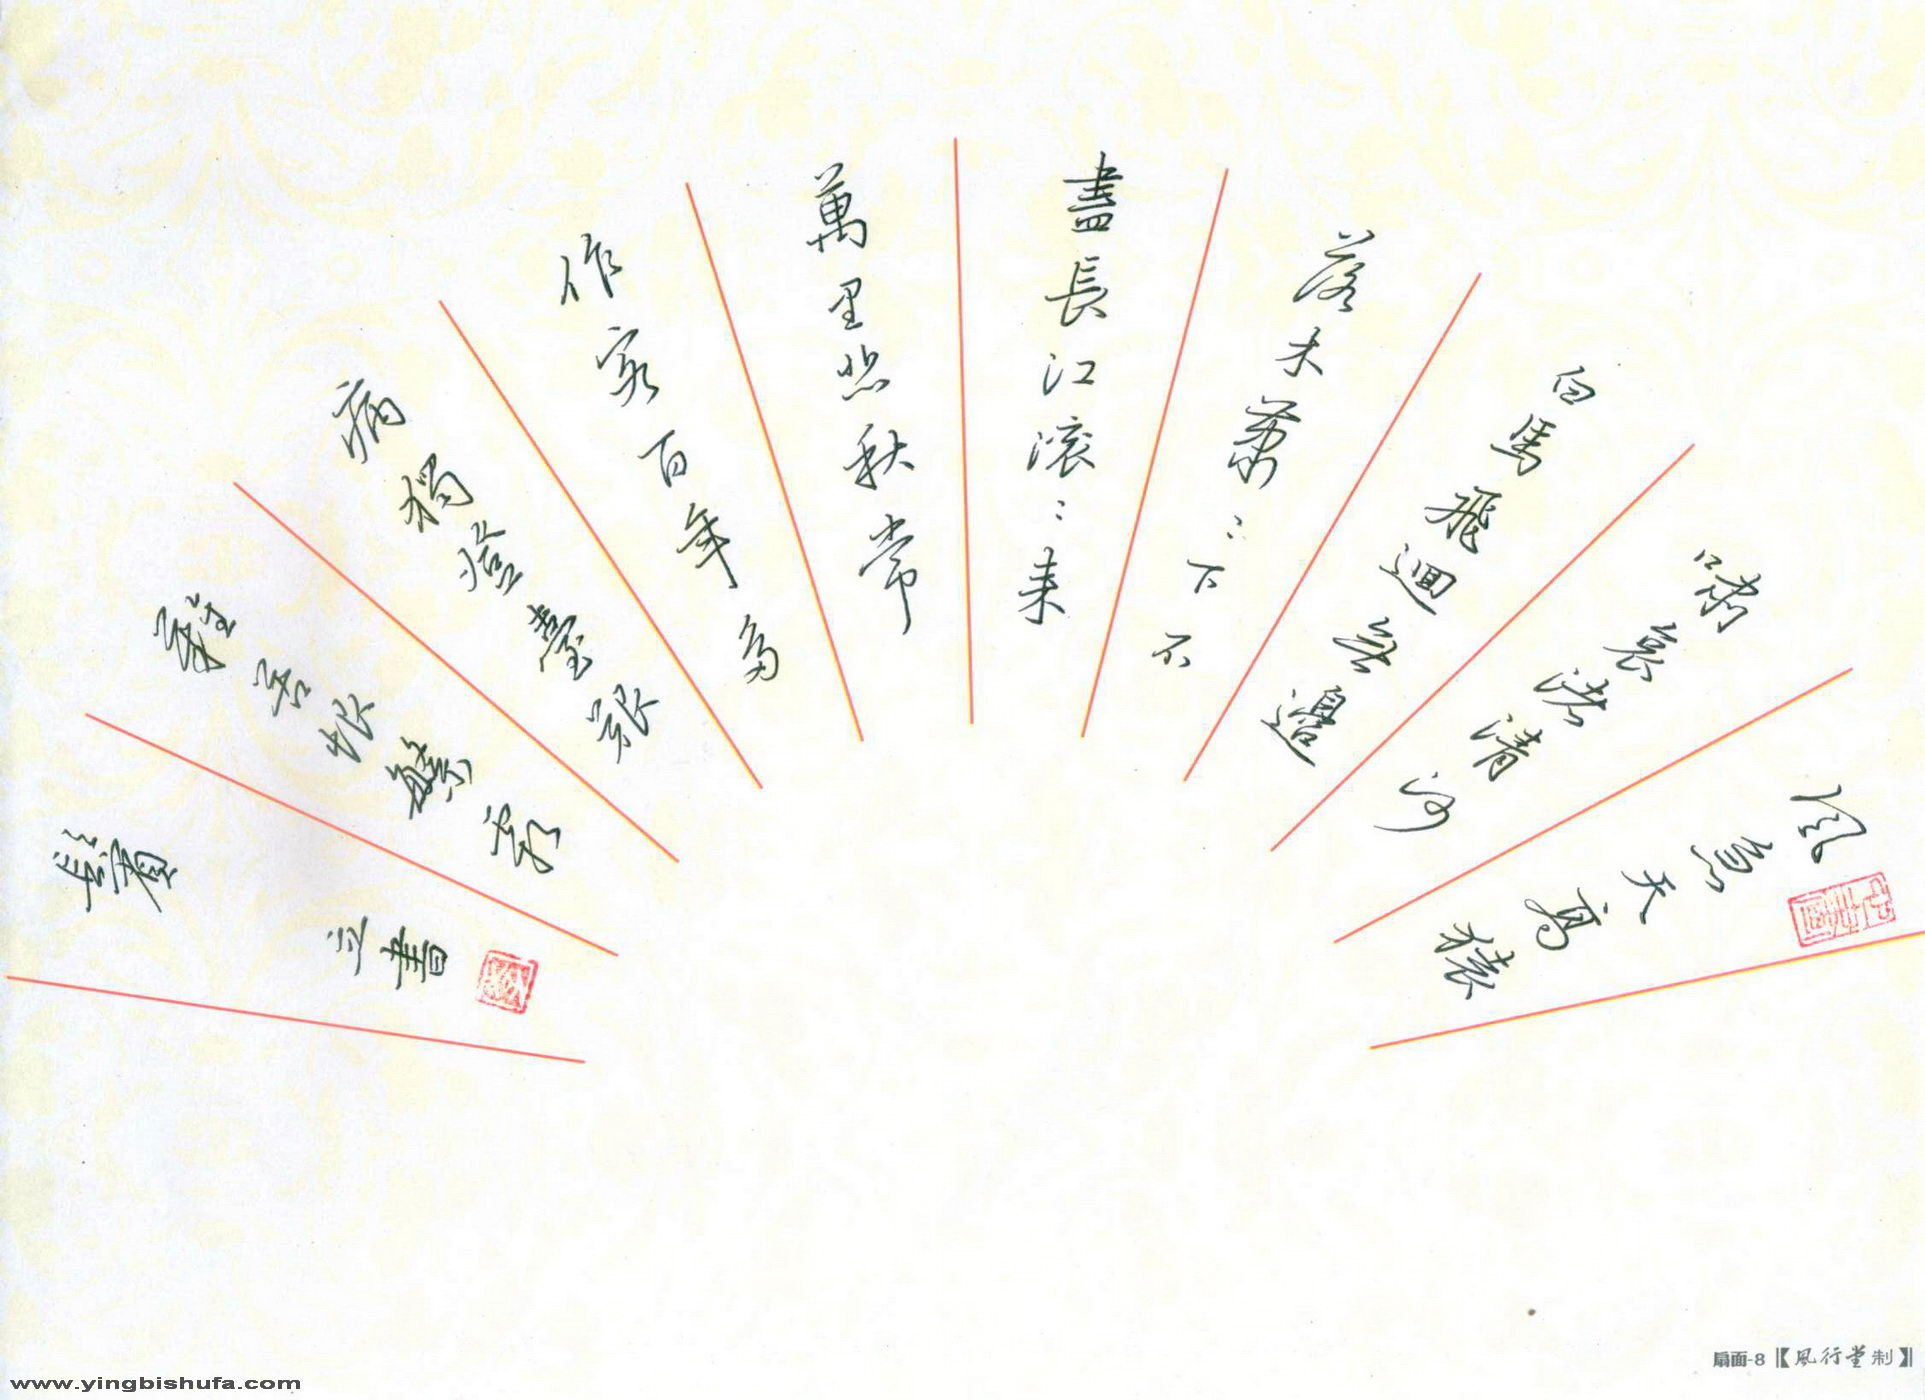 風急天高猿
嘯哀渚清沙
白鳥飛迴無邊
落木蕭〻下不
盡長江滾〻来
萬里悲秋常
作客百年多
病獨登臺艱
難苦恨繁霜
鬢
立書
扇面-8【風行堂制】
www.yingbishufa.com